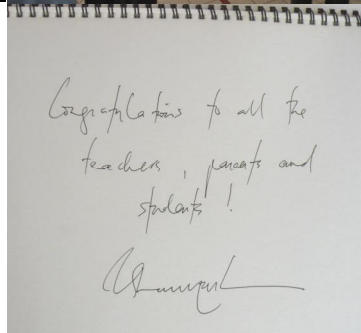 Congratulations to all the
teachers, parents and
students!